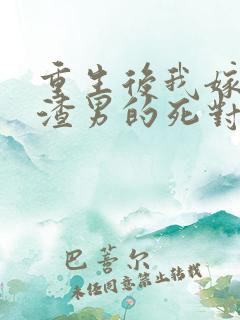 重生後我嫁
渣男的死對
巴蕾尔
未任同意禁止转载